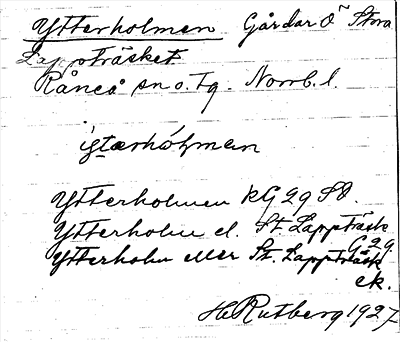 Ytterholmen Gårdar Ö Stora
Lappträsket
Råneå sn o. Tg. Norrb. l.
Ytterholmen KG 29 SO.
Ytterholm el. St. Lappträsk
G. 29
Ytterholm eller St. Lappträsk
ek.
H Rutberg 1927